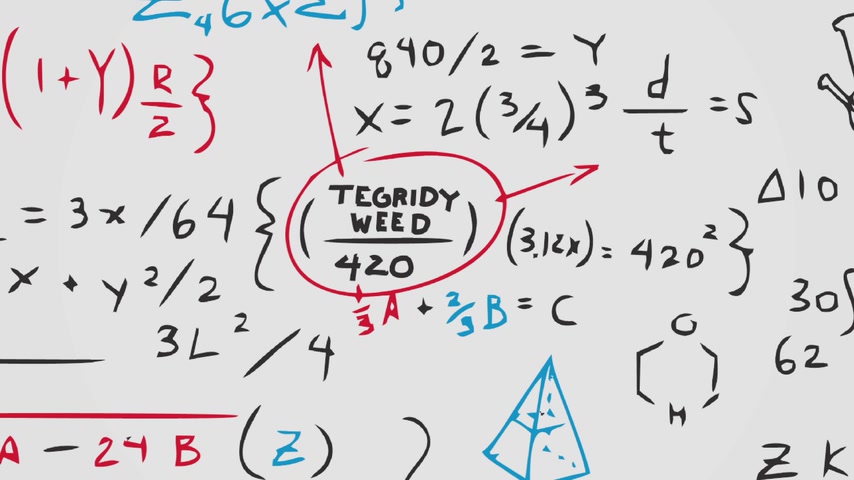 Z₄6xZ
840/2 = Y
(1+Y) R/2 }
X = 2(3/4)³ d/t = S
Δ10
= 3x/64 { ( TEGRIDY WEED / 420 ) (3.12x) = 420² }
x + y²/2
1/3 A + 2/3 B = C
30
3L²/4
O
62
H
A - 24 B (Z) )
Z K